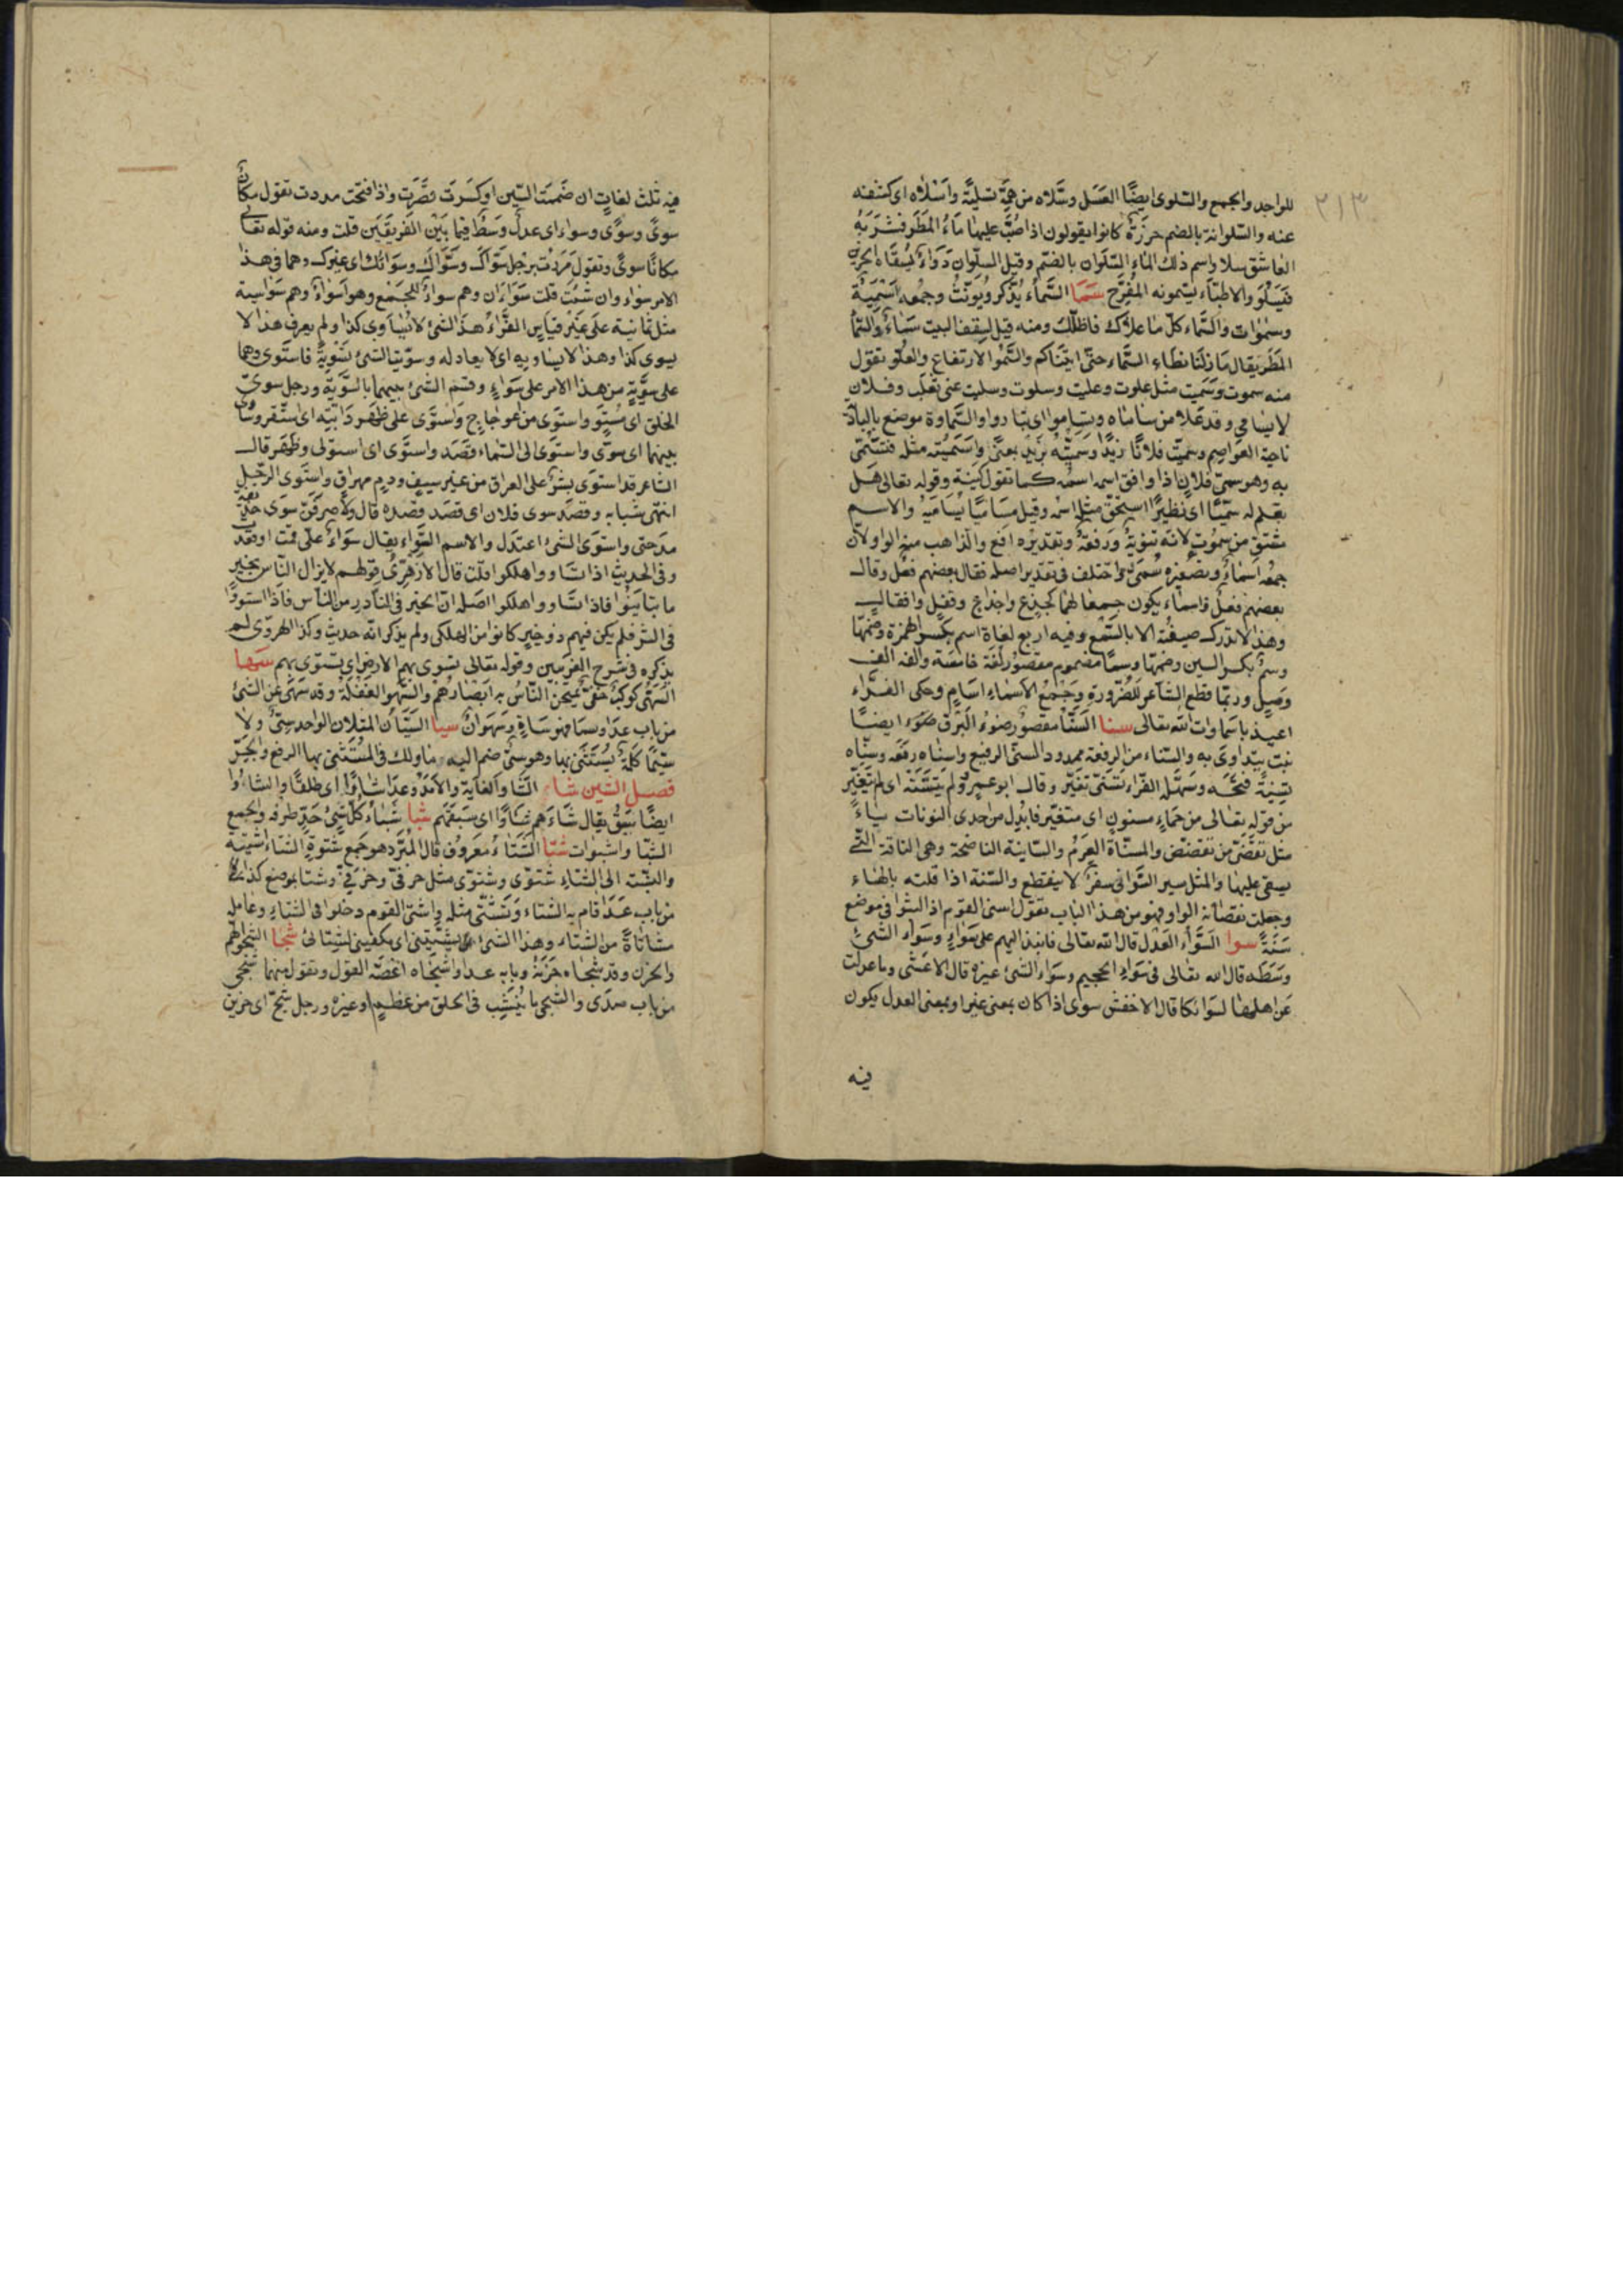 ٢١٣
للواحد والجمع والسّلوى ايضًا العَسَل وسَّلاه من همّه تسليَّة واَسْلاه اى كشفه
عنه والسّلوانة بالضم خَرَزَةٌ كانوا يقولون اذا صُبَّ عليها مَاءُ المَطَر فشَرَبَهُ
العَاشق سلا واسم ذلك المَاءِ السّلَوَان بالضّم وقيل السلّوان دَوَاءٌ يُسقَاه الحزين
فَيَسْلُو والاطبَّاء يسّمونه المُفرّح سَمَا السَّماء يُذكر ويُونَثُ وجمعه اَسْمِيَةٌ
وسمٰوات والسَّماء كلّ ما علاك فاظلّك ومنه قيل لسقف البيت سَمَاءٌ والسَّمَاء
المَطَر يقال مَا زلنَا نطَاء السَّماء حتّى اتينَاكم والسُّموّ الارتفاع والعُلّو تقول
منه سموت وسَميت مثل علوت وعليت وسلوت وسليت عن ثعلب وفلان
لا يسامى وقد عَلا من سَامَاه وتسَاموا اى تبا رَوا والسَّماوة موضع بالبادية
ناحية العواصم وسميّت فلانًا زيدًا وسَمَّيتُه بزيدٍ بمعنًى واسَمَيْته مثله فتَسَمّى
به وهو سمىّ فلانٍ اذا وافق اسمه اسمَه كما تقول كَنِيّه وقوله تعالى هَل
تعلم له سَمِيًّا اى نَظِيرًا استحقّ مثل اسْمه وقيل مسَامِيًا يُسَامِيْه والاسم
مشتق من سَمُوت لانه تنويهٌ ورَفعَةٌ وتقديرُه افع والذاهب منه الواو لانّ
جمعَه اسمَاءٌ وتصغيره سُمَىّ واختلف فى تقدير اصله فقال بعضهم فِعْل وقال
بعضهم فُعْل واسماء يكون جمعا لهمَا كجِذع واجذاع وقفل واقفال
وهذا لا تدرك صيغته الا بالسَّمْع وفيه اربع لغاة اسم بكسر الهمزة وضمّها
وسم بكسر السين وضمّها وسمًا مضموم مقصُور لغَة خامسَة والفه الف
وَصِلٍ وربمّا قطع الشاعر للضّرورةِ وجَمْعُ الاَسْماءِ اسَامٍ وحكى الفرّاء
اعيذ باسمَاوات اللّه تعالى سنا السَّنَا مقصُور ضوءُ البَرْق ضوء ايضًا
نبتٌ يتداوى به والسّناء من الرفعة ممدود السنّى الرفيع واسنَاه رفَعَه وسنّاه
تسنيَةً فتحَه وسَهّله الفرّاء تسَنّى تغيّر وقال ابو عمرٍو لم يَتَسَنّه اى لم يَتَغيّر
من قوله تعالى من حَمَاءٍ مسنونٍ اى متغيّر فابدل من احدى النونات يَاءً
مثل تقضّى من تقضض والمسنّاة العَرِمُ والسّانية الناضحة وهى الناقة التّى
يسقى عليها والمثل سير السَّوانى سفرٌ لا ينقطع والسّنة اذا قلته بالهاء
وجعلت نقصَانه الواو فهو من هذا الباب تقول اسنى القوم اذا لبثوا فى موضع
سَنَةً سوا السَّوَاء العَدْل قال اللّه تعالى فانبذ اليهم على سَوَاءٍ وسَوَاء الشىءِ
وسَطه قال الله تعالى فى سَوَاءِ الجحيم وسَوَاء الشىء غيره قال الاعشى وما عدلت
عَن اهلها لسَوائكا قال الاخفش سوى اذا كان بمعنى غير او بمعنى العدل يكون
فيه
فيه ثلث لغاتٍ ان ضَممت السّين او كسَرت قصَّرت واذا فتحت مددت تقول مكانٌ
سوىً وسُوًى وسواء اى عدلٌ ووسَطٌ فيمَا بَيْن الفَرِيقَين قلت ومنه قوله تعالى
مكانًا سوىً وتقول مَرَرْتُ برجلٍ سوَاكَ وسُوَاكَ وسَوَائك اى غيرك وهما فى هذا
الامر سَوَاء وان شئْتَ قلت سَوَاءَان وهم سواءٌ للجَمْع وهو اَسوَاءٌ وهم سَواسِية
مثل ثمانية علَى غَيْر قيَاسٍ الفَرّاءُ هذَا الشئ لا يُسَاوى كذا ولم يعرف هذا لا
يسوى كذا وهذا لا يساويه اى لا يعادله وسوّيت الشئ تَسْوِيَةً فاستَوى وهما
على سَوِيَّةٍ من هذا الامر على سَوَاءٍ وقسَم الشئ بينهما بالسَّويّة ورجل سوىّ
الخلق اى مُستَوٍ واستَوى من عوجَاجٍ واستَوى على ظهْر دَابَّتِه اى استقر وسَاوى
بينهما اى سوّى واستَوى الى السّماء قصَد واستَوى اى استولى وظهَر قال
الشاعر قد استَوى بشرٌ على العراق من غير سيف ودمٍ مهراق واستَوى الرّجل
انتهى شبابه وقصَد سوى فلان اى قصَد قصْده قال ولاصرفَنّ سوَى حذيفة
مدحتى واستوَى الشئ اعتدَل والاسم السَّواء يقال سَوَاءٌ علىّ قمت او قعدت
وفى الحديث اذا تسَاووا هلكوا قلت قال الازهَرِىُّ قولهم لا يزال النّاس بخير
ما تبَايَنُوا فاذا تسَاووا هلكوا اصَله انّ الخير فى النّادرِ من النّاس فاذا استووا
فى الشر فلم يكن فيهم ذو خيرٍ كانوا من الهلكى ولم يذكر انّه حديث وكذا الهروّى لم
يذكره فى شرح الغريبين وقوله تعالى تسَوى بهم الارض اى تستوى بهم سَها
السّهَى كوكبٌ خفىّ يَمتحِنُ النّاسُ به ابْصَارَهُم والسّهو الغَفْلةُ وقد سَهَى عن الشئ
من باب عدَا وسمَا فهو سَاهٍ وسَهوانُ سيا السِيَّان المثلان الواحد سِىٌّ ولا
سيَّمَا كلمةٌ يُسْتَثنى بها وهو سىٌّ ضم اليه ما ولك فى المُستَثنى بها الرفع والجَرّ
فصل الشين شاء الشَّاو الغَايَة والاَمَدُ وعدَا شَاوًا اى طلقًا والشَّاوُ
ايضًا سَبْقٌ يقال شَاءَهم شاوًا اى سَبَقهم شبا شَبَاءُ كلِّ شئٍ حَدّ طرفه والجمع
الشبَا واشبوات شتا الشِّتَاءُ مَعروُف قال المُبَرّد هو جَمع شتوة الشتاء اشتيَة
والنِسْبة الى الشتاءِ شَتوّى وشتوّى مثل خرفىّ وخرَفىّ وشتا بموضع كذا
من باب عَدَا قام به الشتاء وتَشَتّى مثله واشتى القوم دخلوا فى الشتاء وعامله
مشاتاةً من الشتاء وهذا الشئ يشتّينى اى يكفينى لشتائى شجا الشجو الهم
والحزن وقد شجَاه حَزَنهُ وبابه عدا واشجَاه اغصّه القول وتقول منهما شجى
من باب صدَى والشجى ما يُنشِب فى الحلق من عَظمٍ او غيره ورجل شجٍ اى حزين